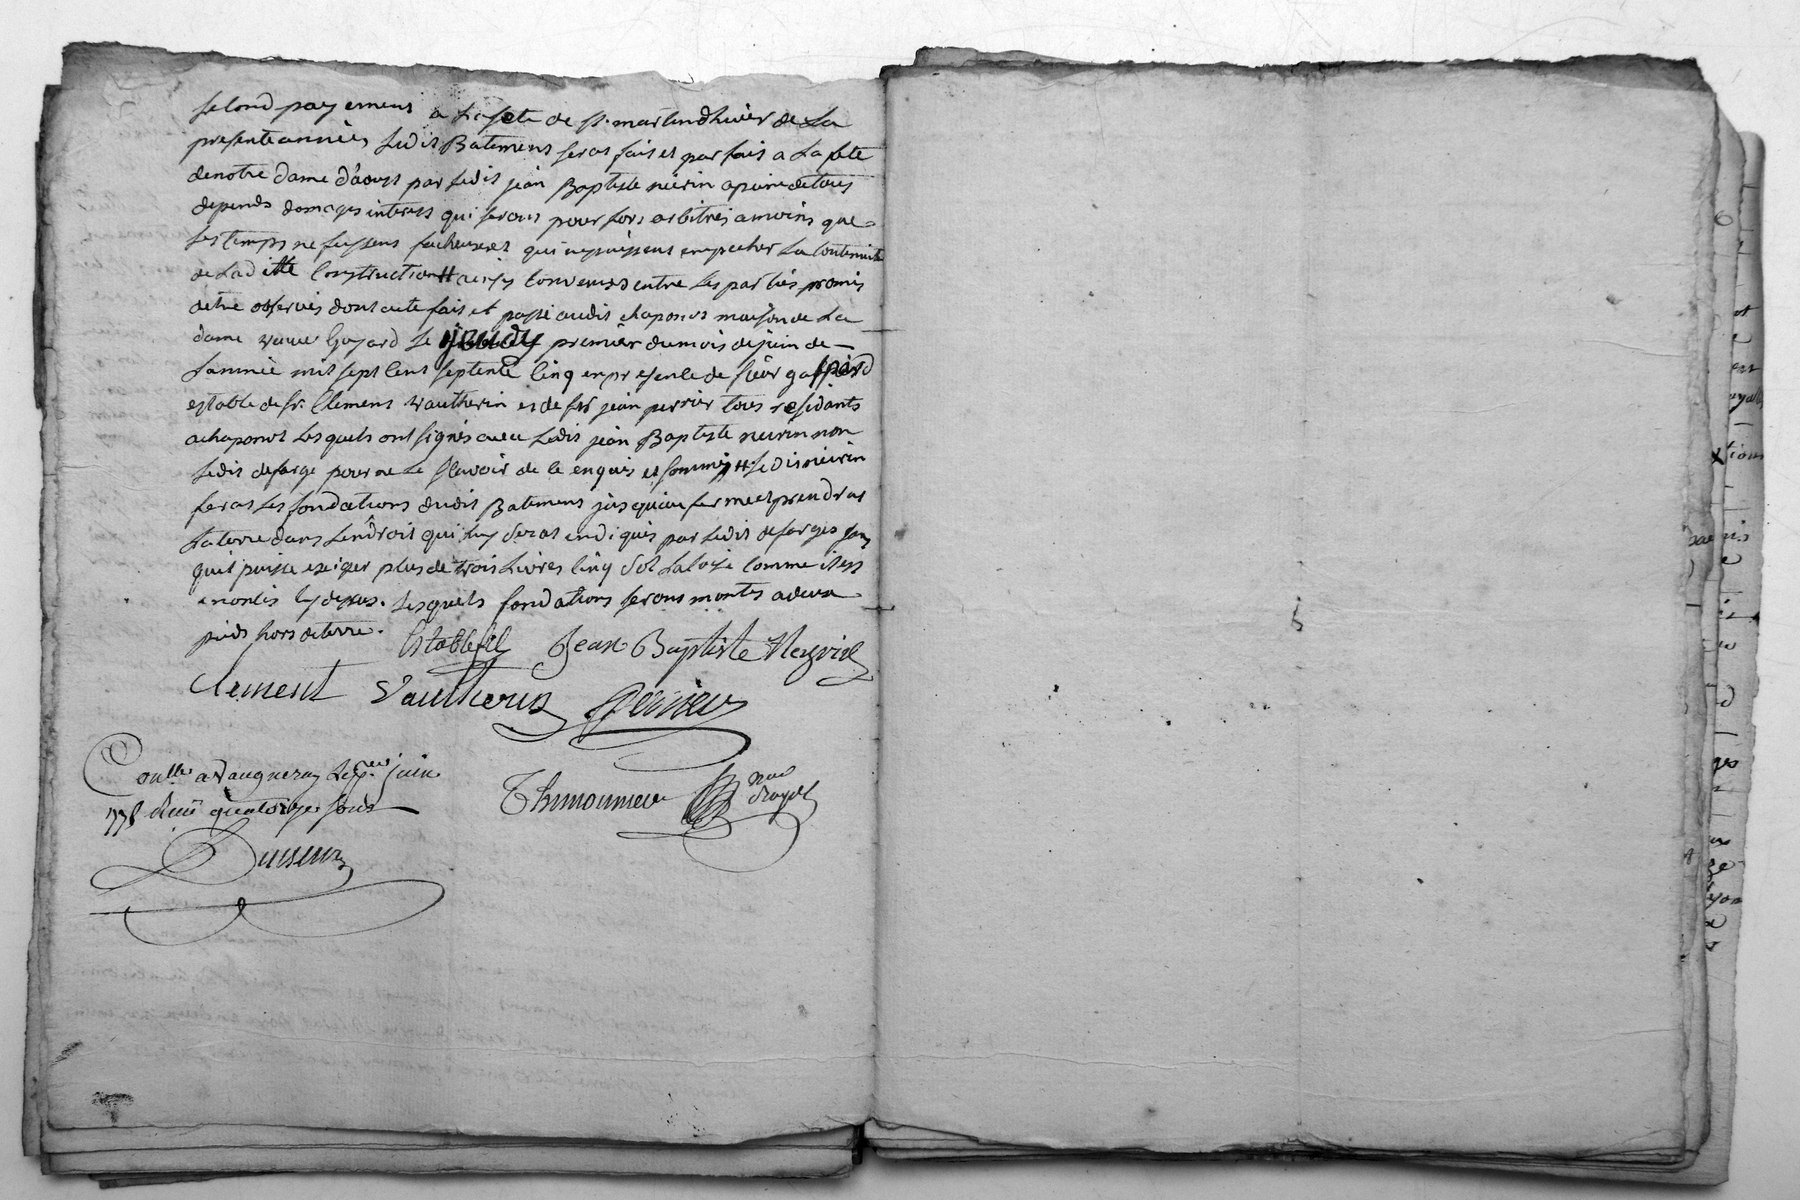 second payement a la fete de st. martin dhiver de la
presente année, ledit Batiment seras fait et parfait a la fete
de notre dame daoust par ledit jean Baptiste néivrin a peine de tous
depends domages interest qui serons pour lors arbitrés a moins que
les temps ne fussent facheuses et qui n'epuissent empecher la
de laditte Construction # ainsy convenus entre les parties promis
detre observés dont acte fait et passé audit chaponost maison de la
dame veuve Goyard le jeudy premier du mois de juin de
lannée mil sept cent septente cinq en presence de sieur gaspard
estable de sr. Clement vautherin et de sr jean perrier tous residants
a chaponost lesquels ont signés avec ledit jean Baptiste neivrin non
ledit desarge pour ne le scavoir de ce enquis et sommé # ledit néivrin
feras les fondations dudit Batiment jusqu'au ferme et prendras
la terre dans lendroit qui luy seras indiqués par ledit desarges sans
quil puisse exiger plus de trois livres cinq sol la toise comme il est
enoncés cy dessus. lesquels fondations serons montés a deux
pieds hors de terre.
Estable Jean Baptiste Neyvrin
Clement Vautherin perrier
Conlle a Vaugneray le juin
1775 Reçu quatorze sous
Thimonnier not royal